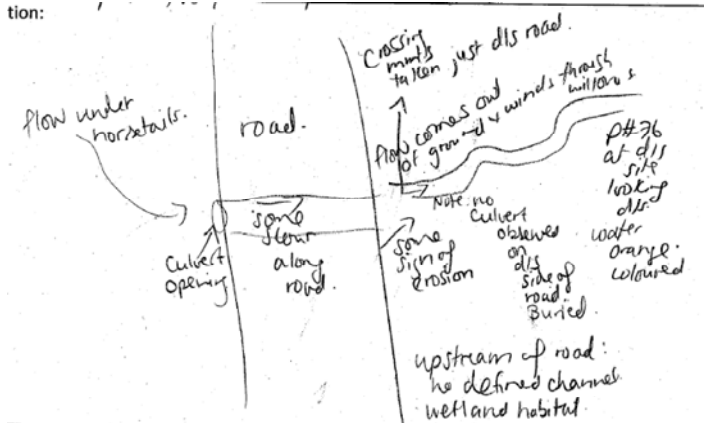 tion:
Crossing
mmts
taken just d/s road.
flow under
horsetails.
road.
flow comes out
of ground & winds through
willows
P#36
at d/s
site
looking
d/s.
water
orange.
coloured
Note: no
culvert
observed
on
d/s
side of
road.
Buried.
some
scour
along
road.
Culvert
opening
some
sign of
erosion
upstream of road:
no defined channel
wetland habitat.